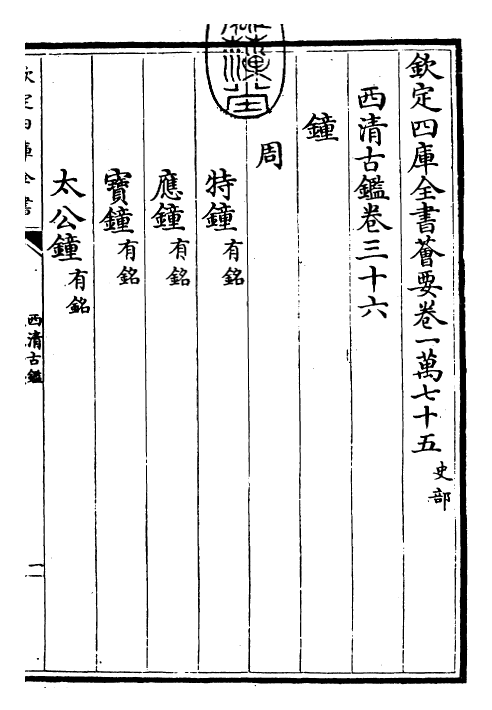 欽定四庫全書薈要卷一萬七十五 史部
西清古鑑卷三十六
鐘
周
特鐘有銘
應鐘有銘
寶鐘有銘
太公鐘有銘
欽定四庫全書
西清古鑑
一